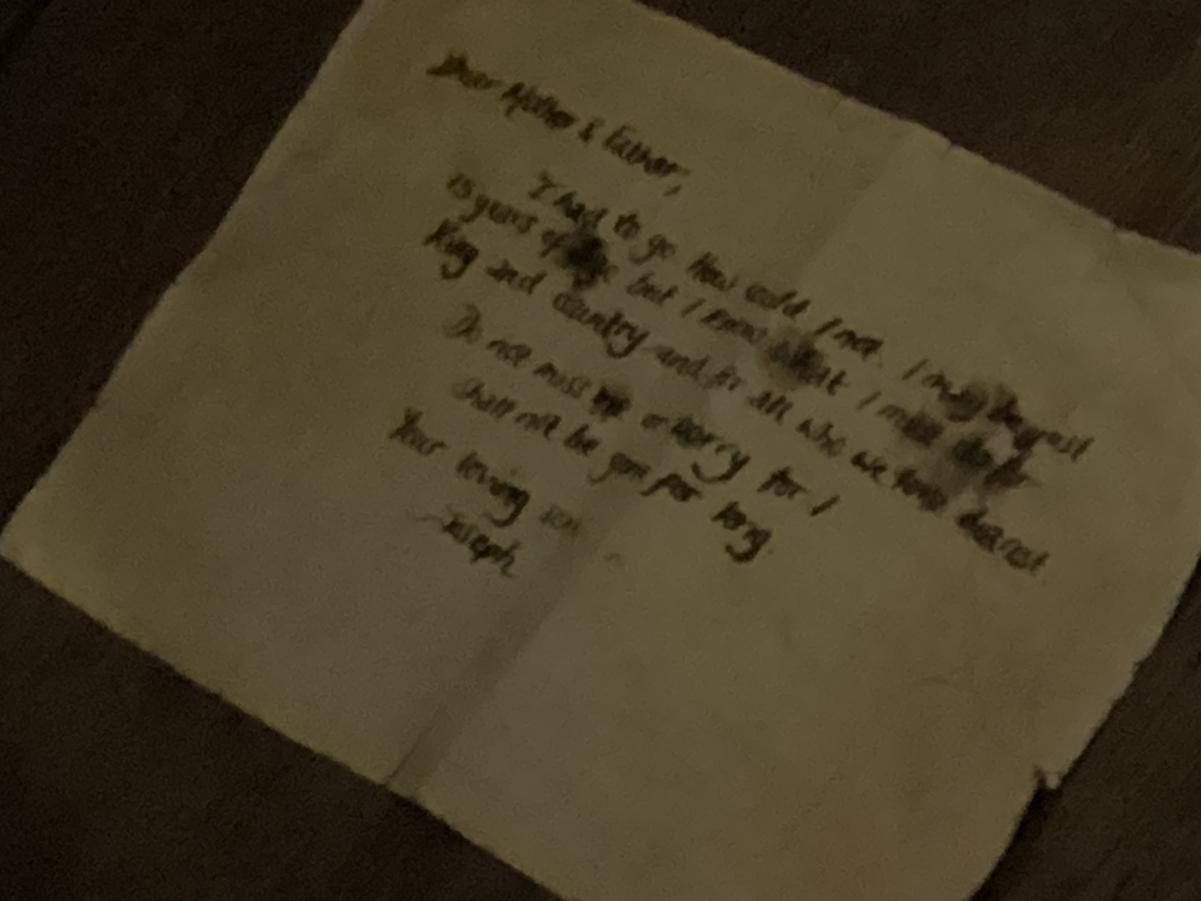 Dear Mother & Father,
I had to go How could I not. I may be just
15 years of age but I know what I must do for
King and country and for all who we hold dearest
Do not miss me or worry for I
shall not be gone for long.
Your loving son
Joseph